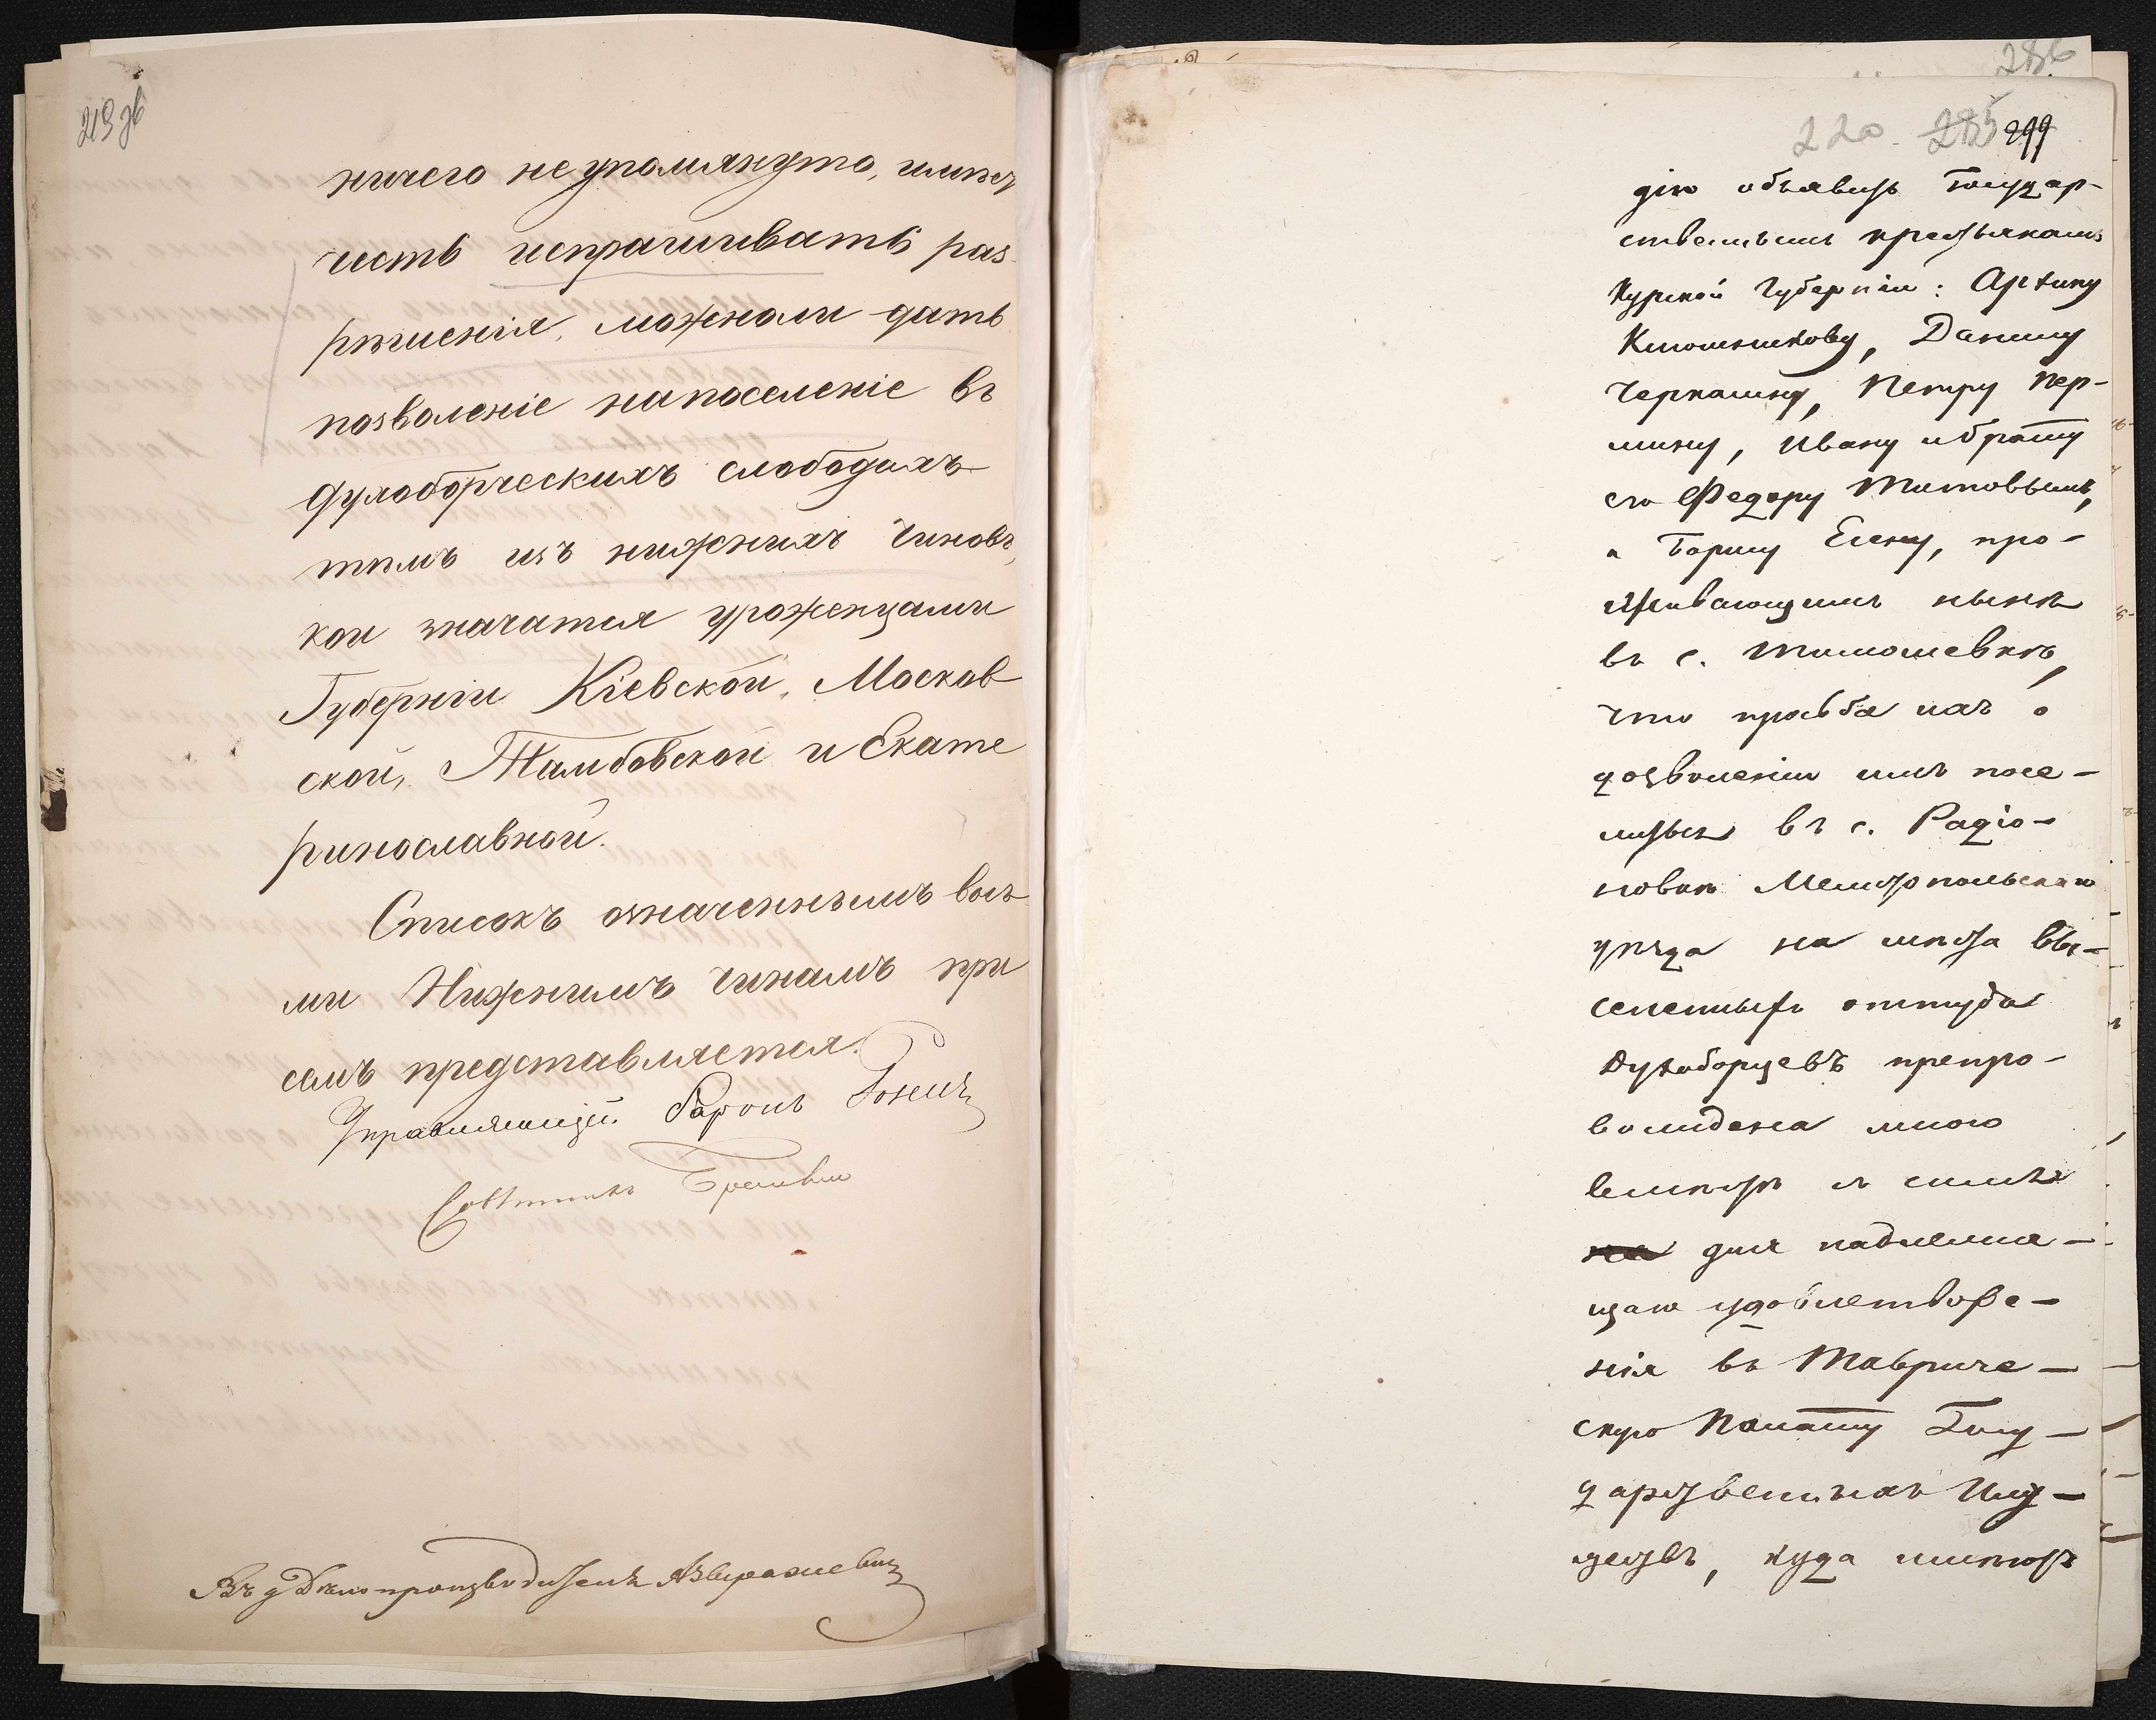 219 об
ничего не упомянуто, имѣетъ
честь испрашивать раз-
рѣшенія, можноли дать
позволеніе на поселеніе въ
Духоборческихъ слободахъ
тѣмъ изъ нижнихъ чиновъ,
кои значатся уроженцами
Губерніи Кіевской, Москов
ской, Тамбовской и Екате
ринославной.
Списокъ означеннымъ всѣ
ми Нижнимъ чинамъ при
семъ представляется.
Управляющій Баронъ Розенъ
Совѣтникъ
Въ д Дѣлопроизводителя
286
220 285 299
дію объявить Государ-
ственнымъ крестьянамъ
Курской Губерніи: Архипу
Клюшникову, Данилу
Черкашину, Петру Пер-
мину, Ивану и брату
его Федору Титовымъ,
и Борису Елсну, про-
живающимъ нынѣ
въ с. Тимошевкѣ,
что просьба ихъ о
дозволеніи имъ посе-
литься въ с. Радіо-
новкѣ Мелитопольскаго
уѣзда на мѣста вы-
селенныхъ оттуда
Духоборцевъ препро-
вождена мною
вмѣстѣ съ симъ
для надлежа-
щаго удовлетворе-
нія въ Тавриче-
скую Палату Госу-
дарственныхъ Иму-
ществъ, куда имѣютъ